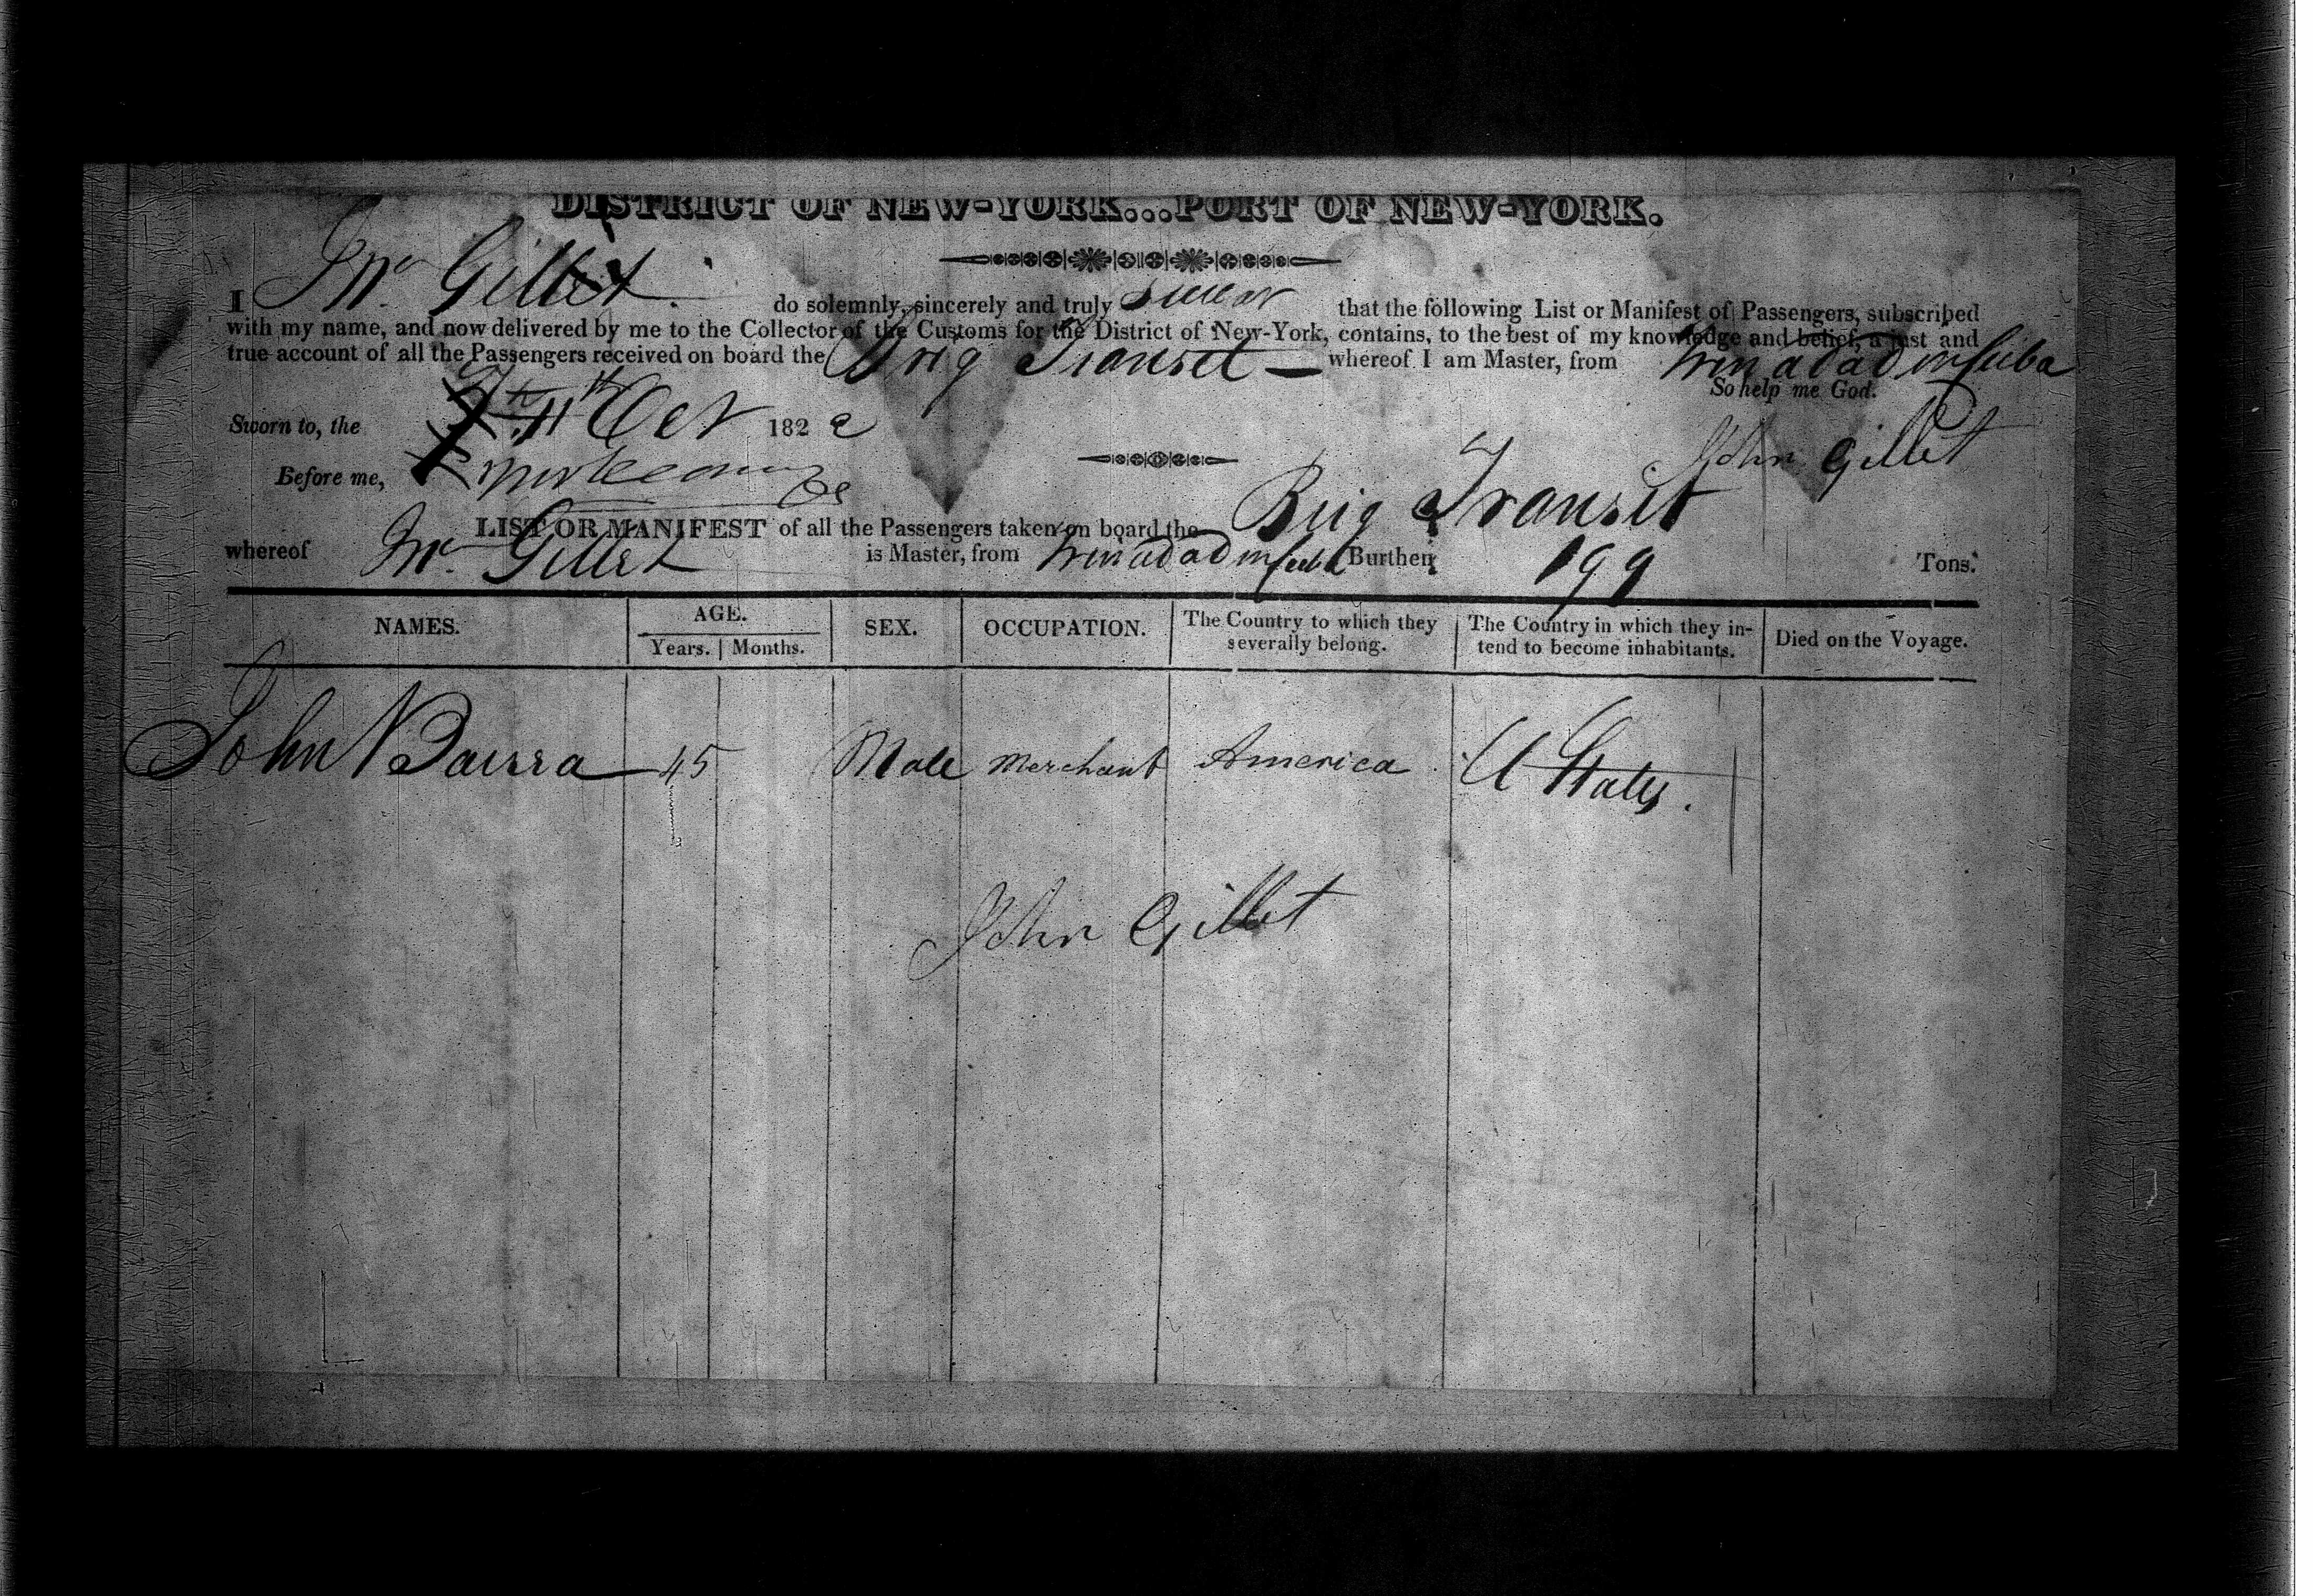 DISTRICT OF NEW-YORK...PORT OF NEW-YORK.
I Jno Gillet. do solemnly, sincerely and truly swear that the following List or Manifest of Passengers, subscribed
with my name, and now delivered by me to the Collector of the Customs for the District of New-York, contains, to the best of my knowledge and belief, a just and
true account of all the Passengers received on board the Brig Transit whereof I am Master, from Trinadad in Cuba
So help me God.
Sworn to, the 11th Oct 1822
John Gillet
Before me,
LIST OR MANIFEST of all the Passengers taken on board the Brig Transit
whereof Jno Gillet is Master, from Trinadad in Cuba Burthen 199 Tons.
NAMES. AGE. SEX. OCCUPATION. The Country to which they severally belong. The Country in which they intend to become inhabitants. Died on the Voyage.
Years. Months.
John 45 Male Merchant America U States.
John Gillet